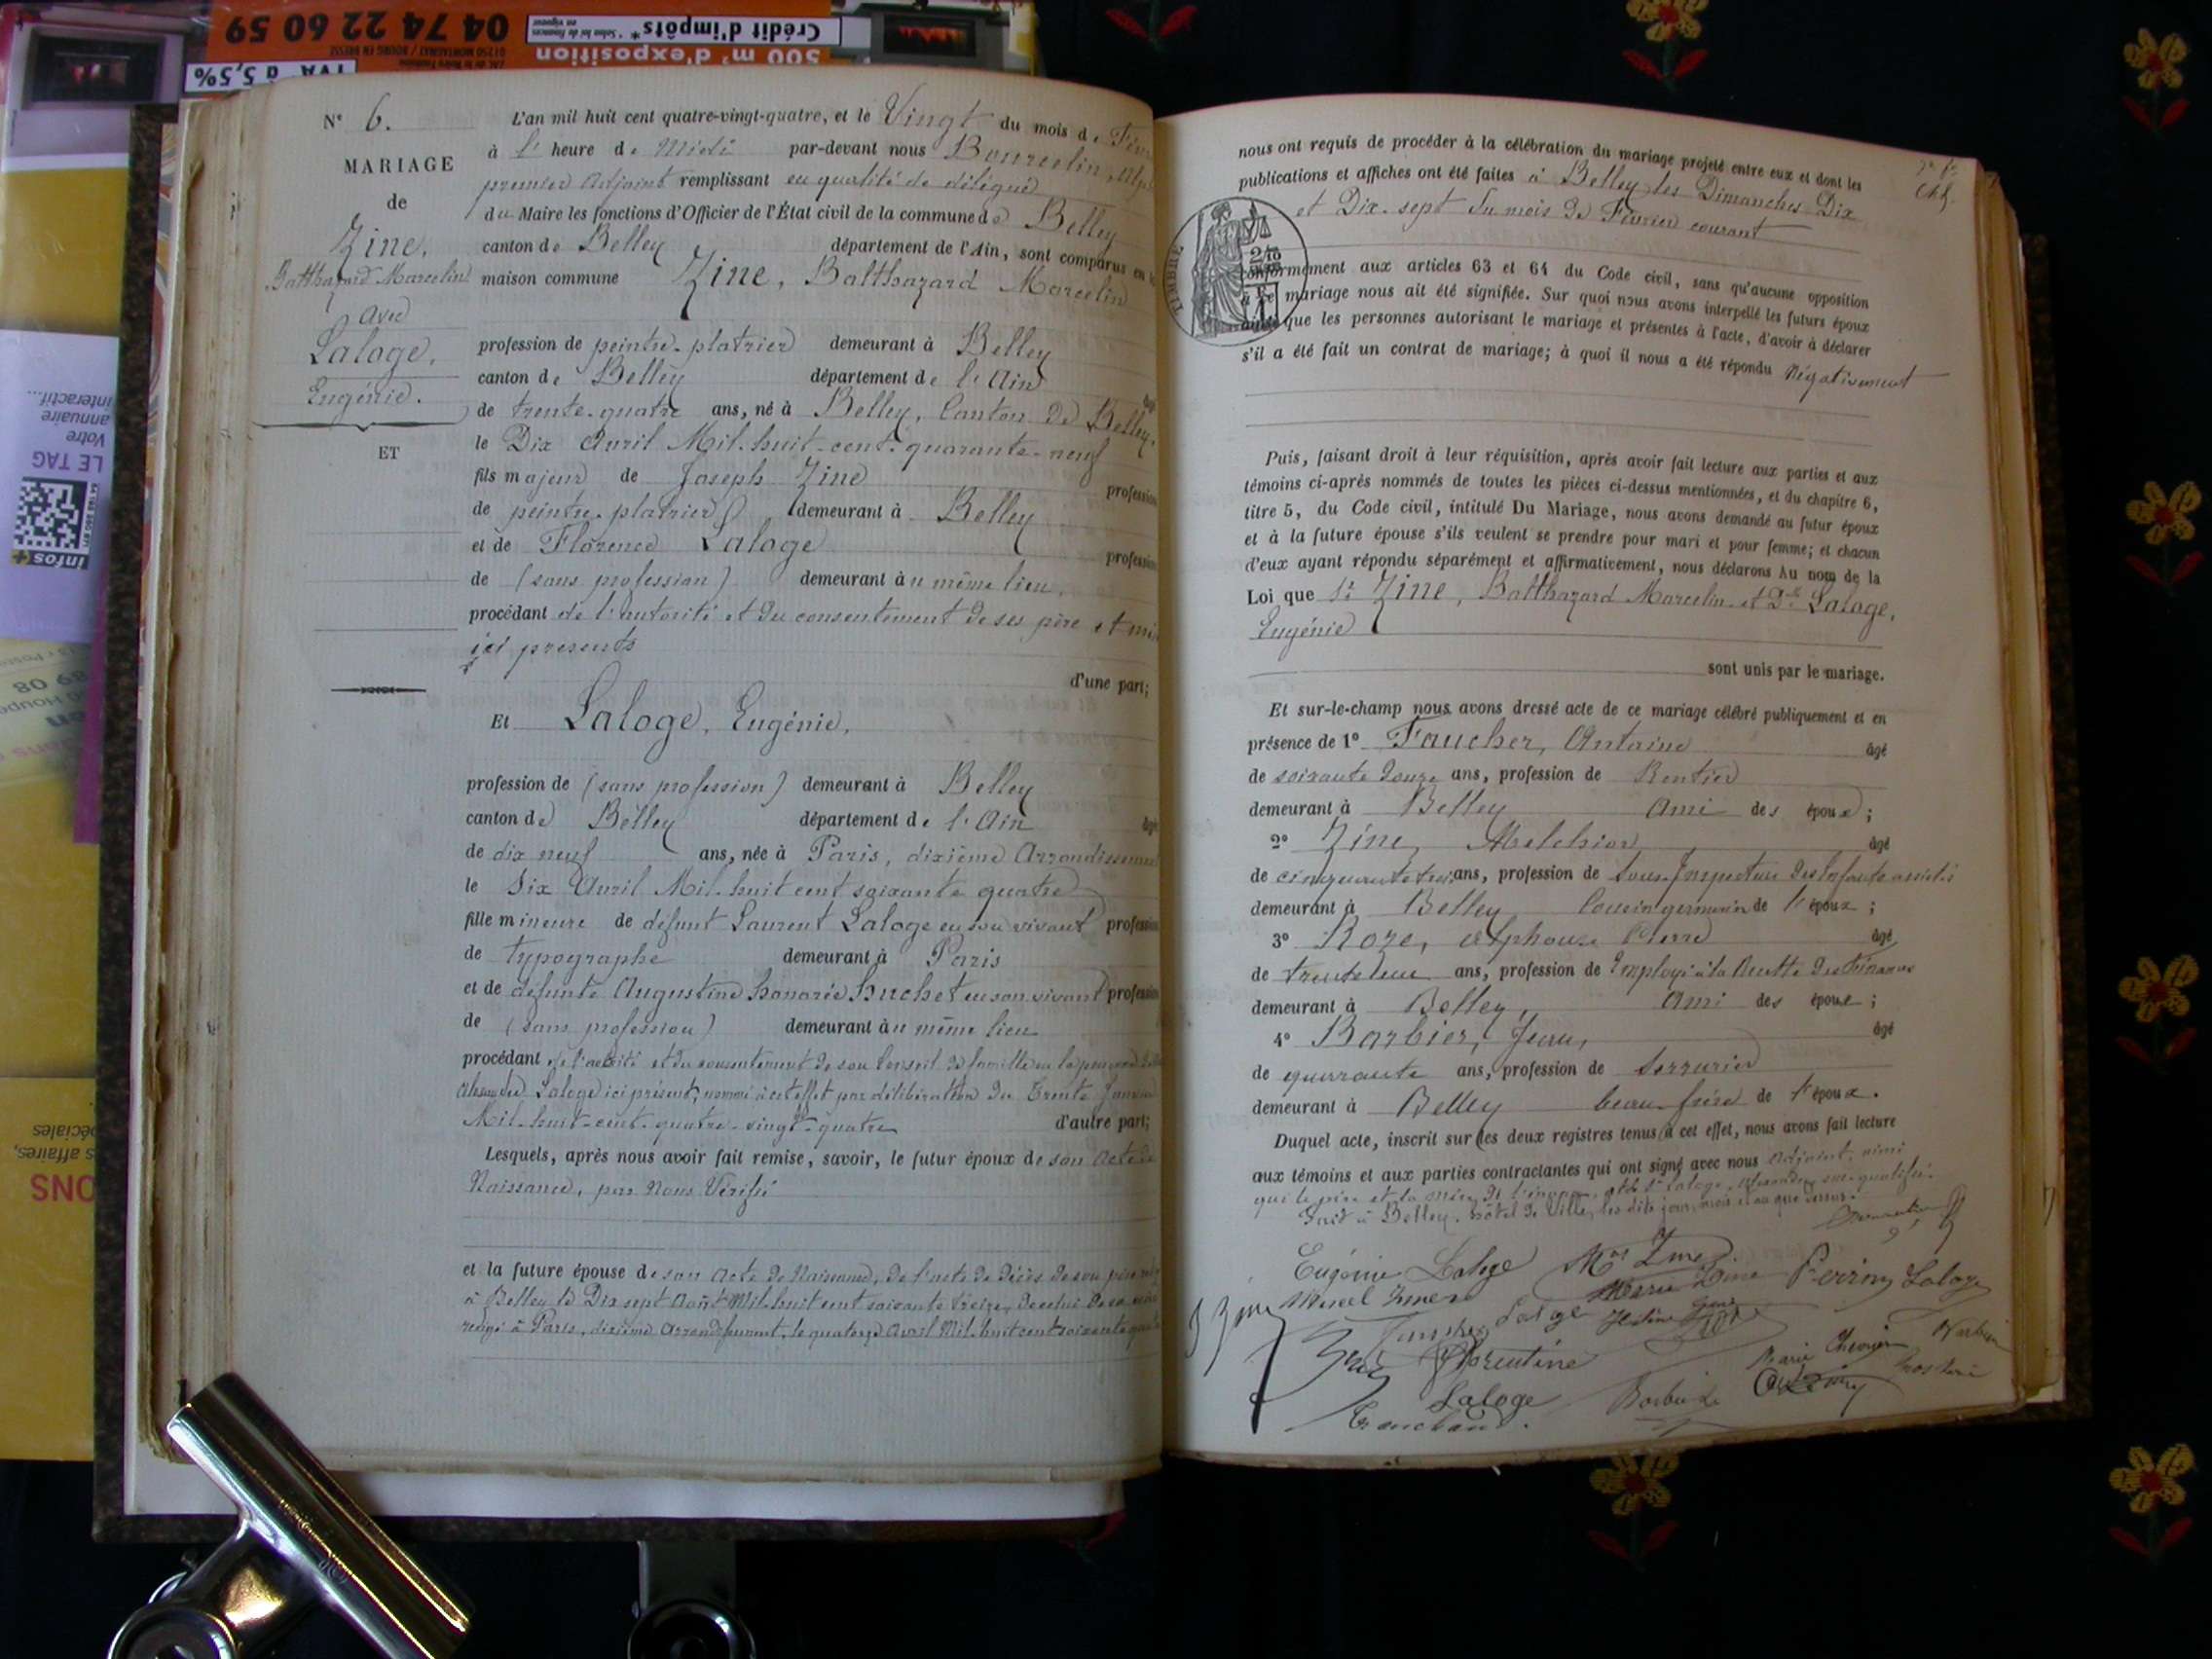 04 74 22 60 59
Crédit d'impôts*
500 m² d'exposition
TVA à 5,5%
annuaire
interactif...
Votre
LE TAG
infos+
N° 6.
MARIAGE
de
Zine,
Balthazard Marcelin
avec
Laloge,
Eugénie.
ET
L'an mil huit cent quatre-vingt-quatre, et le Vingt du mois de
à l' heure de Midi par-devant nous
premier adjoint remplissant en qualité de délégué
du Maire les fonctions d'Officier de l'État civil de la commune de Belley
canton de Belley département de l'Ain, sont comparus en
maison commune Zine, Balthazard Marcelin
profession de peintre-platrier demeurant à Belley
canton de Belley département de l'Ain
de trente-quatre ans, né à Belley, Canton de Belley,
le Dix Avril Mil-huit-cent-quarante-neuf
fils majeur de Joseph Zine profession
de peintre-platrier demeurant à Belley
et de Florence Laloge profession
de (sans profession) demeurant au même lieu,
procédant de l'autorité et du consentement de ses père et
ici présents
d'une part;
Et Laloge, Eugénie,
profession de (sans profession) demeurant à Belley
canton de Belley département de l'Ain
de dix neuf ans, née à Paris, dixième
le Six Avril Mil-huit cent soixante quatre
fille mineure de défunt Laurent Laloge en son vivant profession
de typographe demeurant à Paris
et de défunte Augustine honorée huchet en son vivant profession
de (sans profession) demeurant au même lieu
procédant de l'autorité et du consentement de son Conseil de famille
Laloge ici présent, nommé à cet effet par délibération du Trente
Mil-huit-cent-quatre-vingt-quatre d'autre part;
Lesquels, après nous avoir fait remise, savoir, le futur époux de son acte de
Naissance, par Nous Vérifié
et la future épouse de son acte de Naissance, de l'acte de décès de son père
à Belley le Dix sept Août Mil-huit cent soixante treize, de celui de sa
à Paris, dixième arrondissement, le quatorze Avril Mil-huit cent soixante
nous ont requis de procéder à la célébration du mariage projeté entre eux et dont les
publications et affiches ont été faites à Belley les Dimanches Dix
et Dix-sept du mois de Février courant
TIMBRE
conformément aux articles 63 et 64 du Code civil, sans qu'aucune opposition
à ce mariage nous ait été signifiée. Sur quoi nous avons interpellé les futurs époux
ainsi que les personnes autorisant le mariage et présentes à l'acte, d'avoir à déclarer
s'il a été fait un contrat de mariage; à quoi il nous a été répondu Négativement
Puis, faisant droit à leur réquisition, après avoir fait lecture aux parties et aux
témoins ci-après nommés de toutes les pièces ci-dessus mentionnées, et du chapitre 6,
titre 5, du Code civil, intitulé Du Mariage, nous avons demandé au futur époux
et à la future épouse s'ils veulent se prendre pour mari et pour femme; et chacun
d'eux ayant répondu séparément et affirmativement, nous déclarons Au nom de la
Loi que Sr Zine, Balthazard Marcelin et Dlle Laloge,
Eugénie
sont unis par le mariage.
Et sur-le-champ nous avons dressé acte de ce mariage célébré publiquement et en
présence de 1° Faucher, Antoine âgé
de soixante douze ans, profession de Rentier
demeurant à Belley Ami des époux;
2° Zine, Melchior âgé
de cinquante trois ans, profession de Sous-Inspecteur des Enfants assistés
demeurant à Belley Cousin germain de l'époux;
3° Roze, Alphonse Pierre âgé
de ans, profession de Employé à la Recette des finances
demeurant à Belley, Ami des époux;
4° Barbier, Jean, âgé
de quarante ans, profession de Serrurier
demeurant à Belley beau-frère de l'époux.
Duquel acte, inscrit sur les deux registres tenus à cet effet, nous avons fait lecture
aux témoins et aux parties contractantes qui ont signé avec nous adjoint, ainsi
que le père et la mère de l'époux, et le Sr Laloge, sus-qualifié.
Fait à Belley, hôtel de Ville, les dits jour, mois et an que dessus.
Eugénie Laloge
Marcel Zine
Marie Zine
Perrin Laloge
Laloge
Florentine
Laloge
Tranchand.